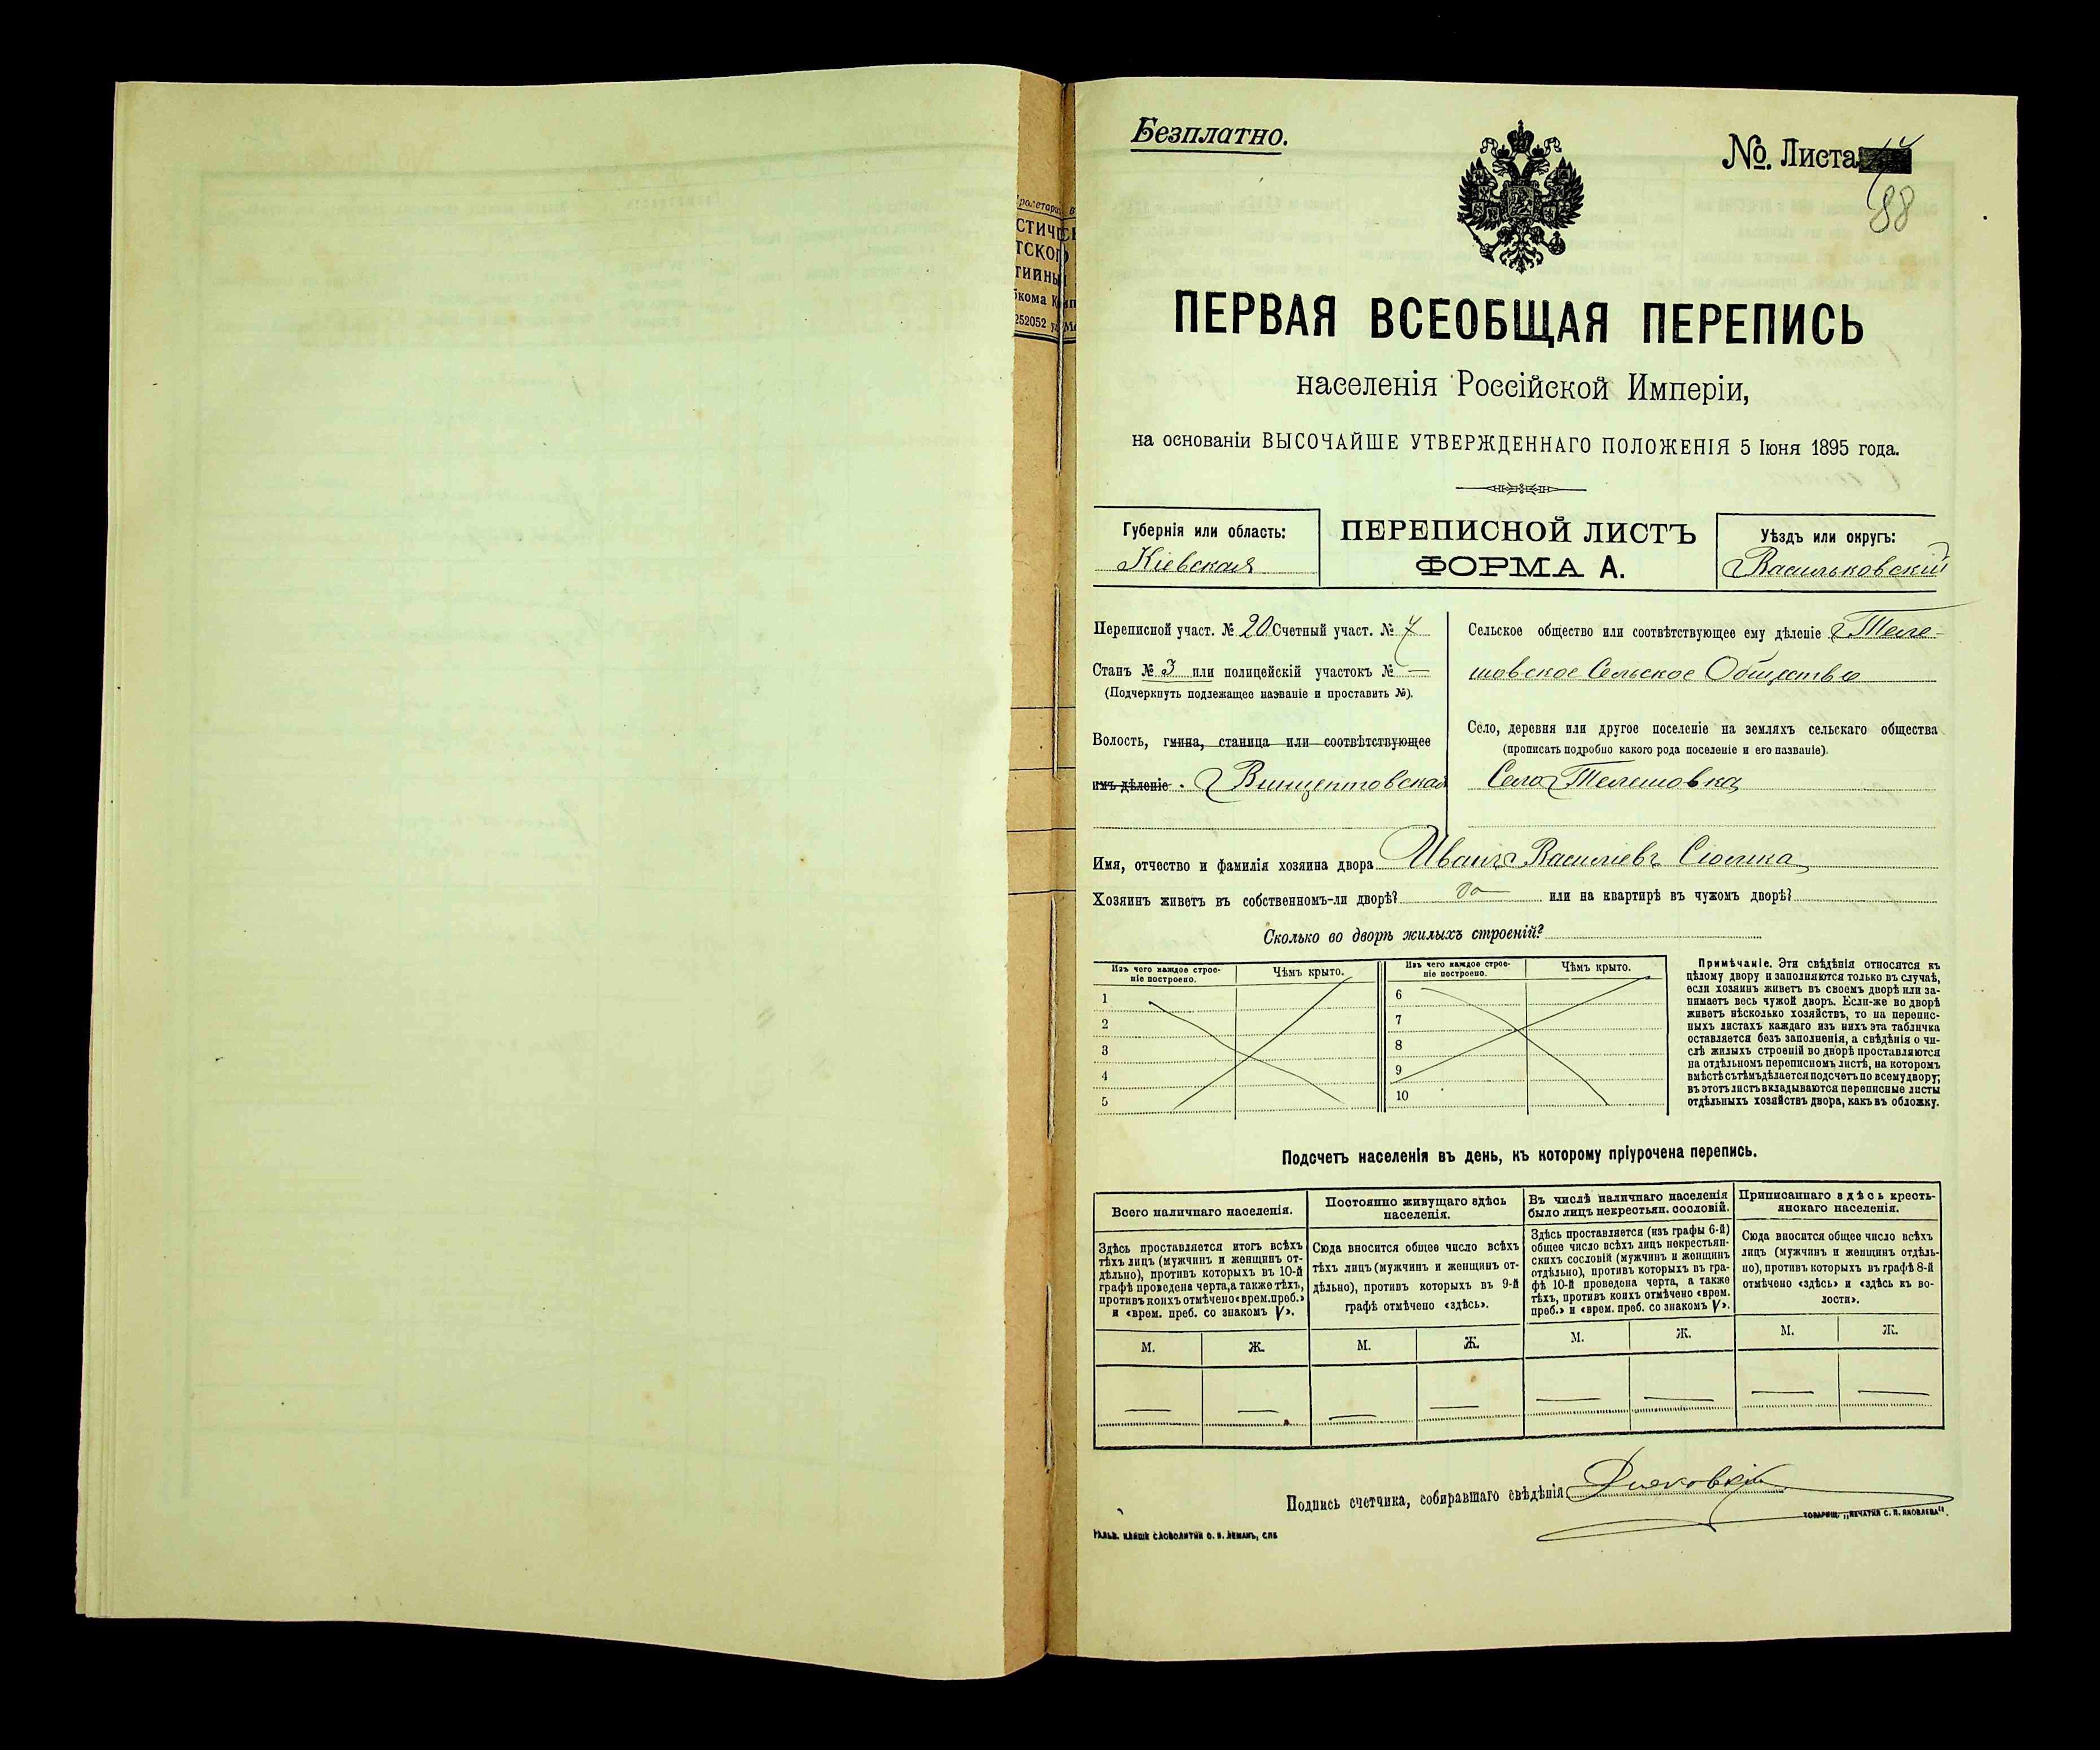 СТИЧЕСК
ТСКОГО
252052
Безплатно.
№. Листа
88
ПЕРВАЯ ВСЕОБЩАЯ ПЕРЕПИСЬ
населенія Россійской Имперіи,
на основаніи ВЫСОЧАЙШЕ УТВЕРЖДЕННАГО ПОЛОЖЕНІЯ 5 Іюня 1895 года.
Губернія или область:
Кіевская
ПЕРЕПИСНОЙ ЛИСТЪ
ФОРМА А.
Уѣздъ или округъ:
Васильковскій
Переписной участ. № 20 Счетный участ. №
Станъ № 3 или полицейскій участокъ № —
(Подчеркнуть подлежащее названіе и проставить №).
Волость, гмина, станица или соотвѣтствующее
имъ дѣленіе. Винцентовская
Сельское общество или соотвѣтствующее ему дѣленіе Теле-
шовское Сельское Общество
Село, деревня или другое поселеніе на земляхъ сельскаго общества
(прописать подробно какого рода поселеніе и его названіе).
Село Телешовка
Имя, отчество и фамилія хозяина двора Иванъ Василіевъ
Хозяинъ живетъ въ собственномъ-ли дворѣ? да или на квартирѣ въ чужомъ дворѣ?
Сколько во дворѣ жилыхъ строеній?
Изъ чего каждое строе-
ніе построено.
Чѣмъ крыто.
1
2
3
4
5
Изъ чего каждое строе-
ніе построено.
Чѣмъ крыто.
6
7
8
9
10
Примѣчаніе. Эти свѣдѣнія относятся къ
цѣлому двору и заполняются только въ случаѣ,
если хозяинъ живетъ въ своемъ дворѣ или за-
нимаетъ весь чужой дворъ. Если-же во дворѣ
живетъ нѣсколько хозяйствъ, то на перепис-
ныхъ листахъ каждаго изъ нихъ эта табличка
оставляется безъ заполненія, а свѣдѣнія о чи-
слѣ жилыхъ строеній во дворѣ проставляются
на отдѣльномъ переписномъ листѣ, на которомъ
вмѣстѣ съ тѣмъ дѣлается подсчетъ по всему двору;
въ этотъ листъ вкладываются переписные листы
отдѣльныхъ хозяйствъ двора, какъ въ обложку.
Подсчетъ населенія въ день, къ которому пріурочена перепись.
Всего наличнаго населенія.
Здѣсь проставляется итогъ всѣхъ
тѣхъ лицъ (мужчинъ и женщинъ от-
дѣльно), противъ которыхъ въ 10-й
графѣ проведена черта, а также тѣхъ,
противъ коихъ отмѣчено «врем. преб.»
и «врем. преб. со знакомъ V».
М. Ж.
— —
Постоянно живущаго здѣсь
населенія.
Сюда вносится общее число всѣхъ
тѣхъ лицъ (мужчинъ и женщинъ от-
дѣльно), противъ которыхъ въ 9-й
графѣ отмѣчено «здѣсь».
М. Ж.
— —
Въ числѣ наличнаго населенія
было лицъ некрестьян. сословій.
Здѣсь проставляется (изъ графы 6-й)
общее число всѣхъ лицъ некрестьян-
скихъ сословій (мужчинъ и женщинъ
отдѣльно), противъ которыхъ въ гра-
фѣ 10-й проведена черта, а также
тѣхъ, противъ коихъ отмѣчено «врем.
преб.» и «врем. преб. со знакомъ V».
М. Ж.
— —
Приписаннаго здѣсь кресть-
янскаго населенія.
Сюда вносится общее число всѣхъ
лицъ (мужчинъ и женщинъ отдѣль-
но), противъ которыхъ въ графѣ 8-й
отмѣчено «здѣсь» и «здѣсь къ во-
лости».
М. Ж.
— —
Подпись счетчика, собиравшаго свѣдѣнія
ГАЛЬВ. КЛИШЕ СЛОВОЛИТНИ О. И. ЛЕМАНЪ, СПБ
ТОВАРИЩ. „ПЕЧАТНЯ С. П. ЯКОВЛЕВА".